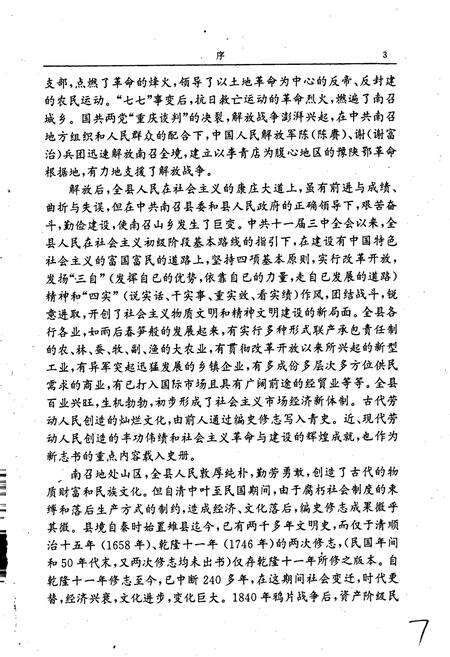 序 3
支部,点燃了革命的烽火,领导了以土地革命为中心的反帝、反封建
的农民运动。“七七”事变后,抗日救亡运动的革命烈火,燃遍了南召
城乡。国共两党“重庆谈判”的决裂,解放战争澎湃兴起,在中共南召
地方组织和人民群众的配合下,中国人民解放军陈(陈赓)、谢(谢富
治)兵团迅速解放南召全境,建立以李青店为腹心地区的豫陕鄂革命
根据地,有力地支援了解放战争。
解放后,全县人民在社会主义的康庄大道上,虽有前进与成绩、
曲折与失误,但在中共南召县委和县人民政府的正确领导下,艰苦奋
斗,勤俭建设,使南召山乡发生了巨变。中共十一届三中全会以来,全
县人民在社会主义初级阶段基本路线的指引下,在建设有中国特色
社会主义的富国富民的道路上,坚持四项基本原则,实行改革开放,
发扬“三自”(发挥自己的优势,依靠自己的力量,走自己发展的道路)
精神和“四实”(说实话、干实事、重实效、看实绩)作风,团结战斗,锐
意进取,开创了社会主义物质文明和精神文明建设的新局面。全县各
行各业,如雨后春笋般的发展起来,有实行多种形式联产承包责任制
的农、林、蚕、牧、副、渔的大农业,有贯彻改革开放以来所兴起的新型
工业,有异军突起迅猛发展的乡镇企业,有多成份多层次多方位供民
需求的商业,有已打入国际市场且具有广阔前途的经贸业等等。全县
百业兴旺,生机勃勃,初步形成了社会主义市场经济新体制。古代劳
动人民创造的灿烂文化,由前人通过编史修志写入青史。近、现代劳
动人民创造的丰功伟绩和社会主义革命与建设的辉煌成就,也作为
新志书的重点内容载入史册。
南召地处山区,全县人民敦厚纯朴,勤劳勇敢,创造了古代的物
质财富和民族文化。但自清中叶至民国期间,由于腐朽社会制度的束
缚和落后生产方式的制约,造成经济、文化落后,编史修志成果微乎
其微。县境自秦时始置雉县迄今,已有两千多年文明史,而仅于清顺
治十五年(1658年)、乾隆十一年(1746年)的两次修志,(民国年间
和50年代末,又两次修志均未出书)仅存乾隆十一年所修之版本。自
乾隆十一年修志至今,已中断240多年,在这期间社会变迁,时代更
替,经济兴衰,文化进步,变化巨大。1840年鸦片战争后,资产阶级民
7